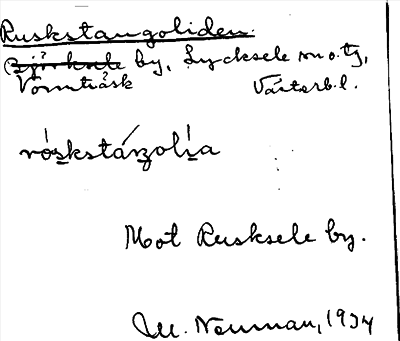 Ruskstangoliden.
Björksele by, Lycksele sn o. tg,
Vormträsk Västerb. l.
róskstáŋolìa
Mot Rusksele by.
M. Neuman, 1934